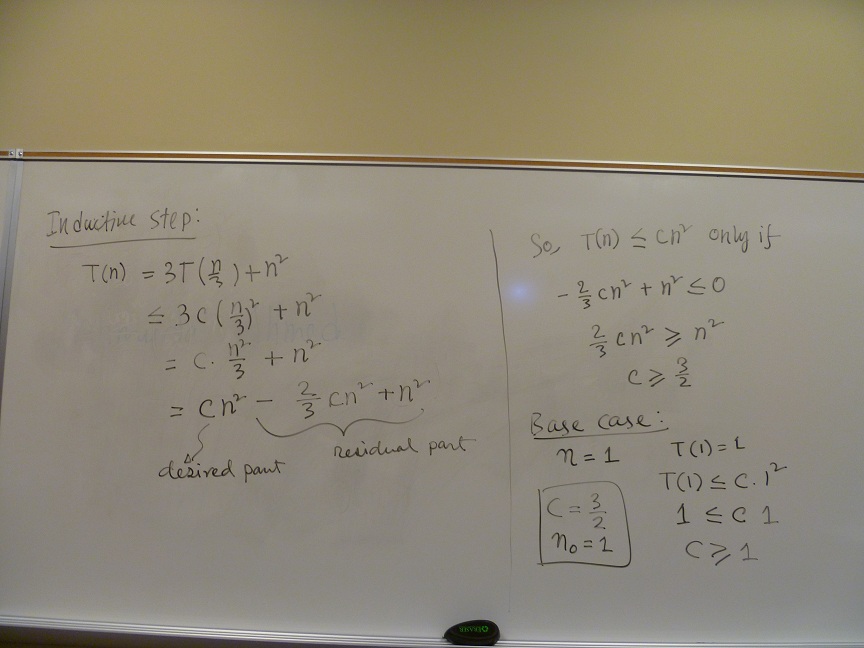 Inductive step:
T(n) = 3T(n/3) + n²
≤ 3c(n/3)² + n²
= c. n²/3 + n²
= cn² - 2/3 cn² + n²
desired part
residual part
So, T(n) ≤ cn² only if
-2/3 cn² + n² ≤ 0
2/3 cn² ≥ n²
c ≥ 3/2
Base case:
n = 1
T(1) = 1
T(1) ≤ c.1²
1 ≤ c 1
c ≥ 1
C = 3/2
n₀ = 1